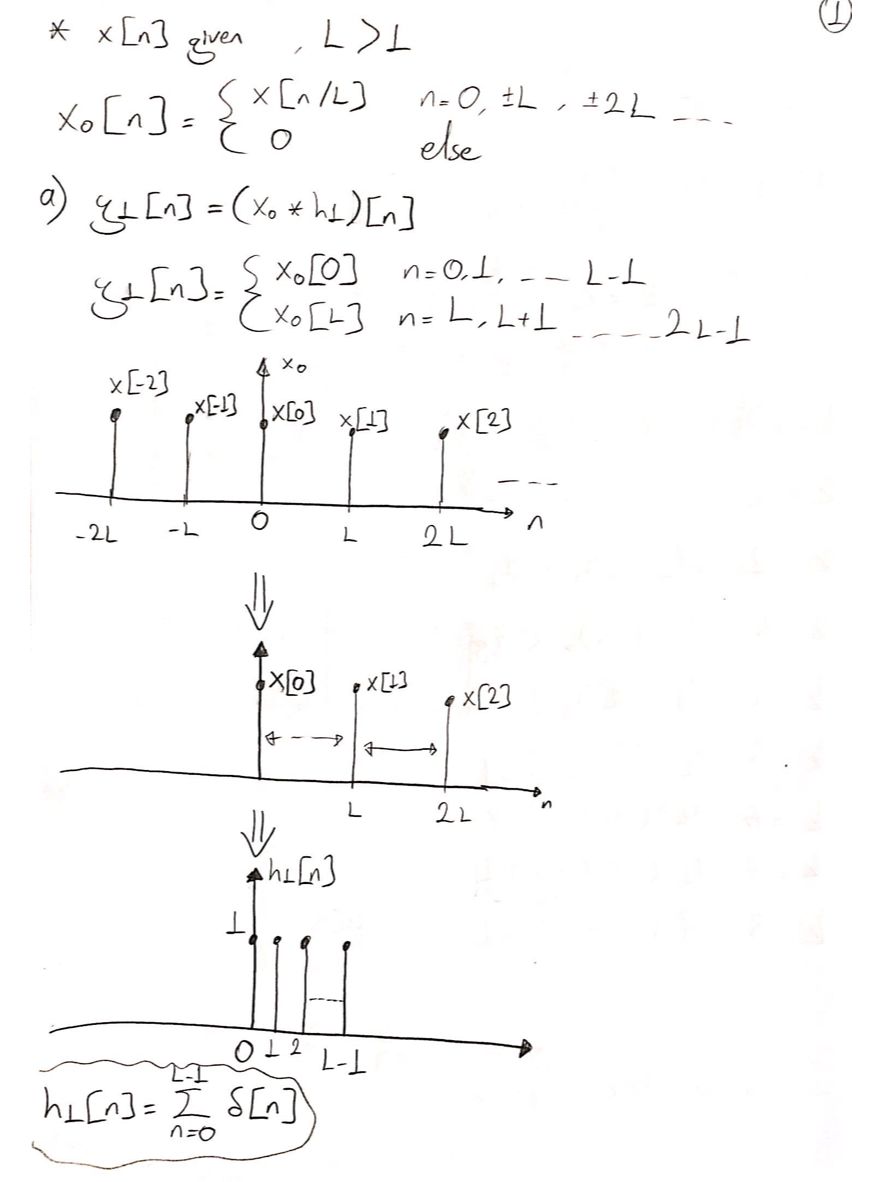 ①
* x[n] given , L>1
x₀[n] = { x[n/L] n=0, ±L, ±2L ----
0 else
a) y₁[n] = (x₀ * h₁)[n]
y₁[n] = { x₀[0] n=0,1, --- L-1
x₀[L] n= L, L+1 ------ 2L-1
x₀
x[-2] x[-1] x[0] x[1] x[2]
---
-2L -L 0 L 2L n
⇓
x[0] x[1] x[2]
L 2L n
⇓
h₁[n]
1
----
0 1 2 L-1
h₁[n] = L-1 Σ n=0 δ[n]